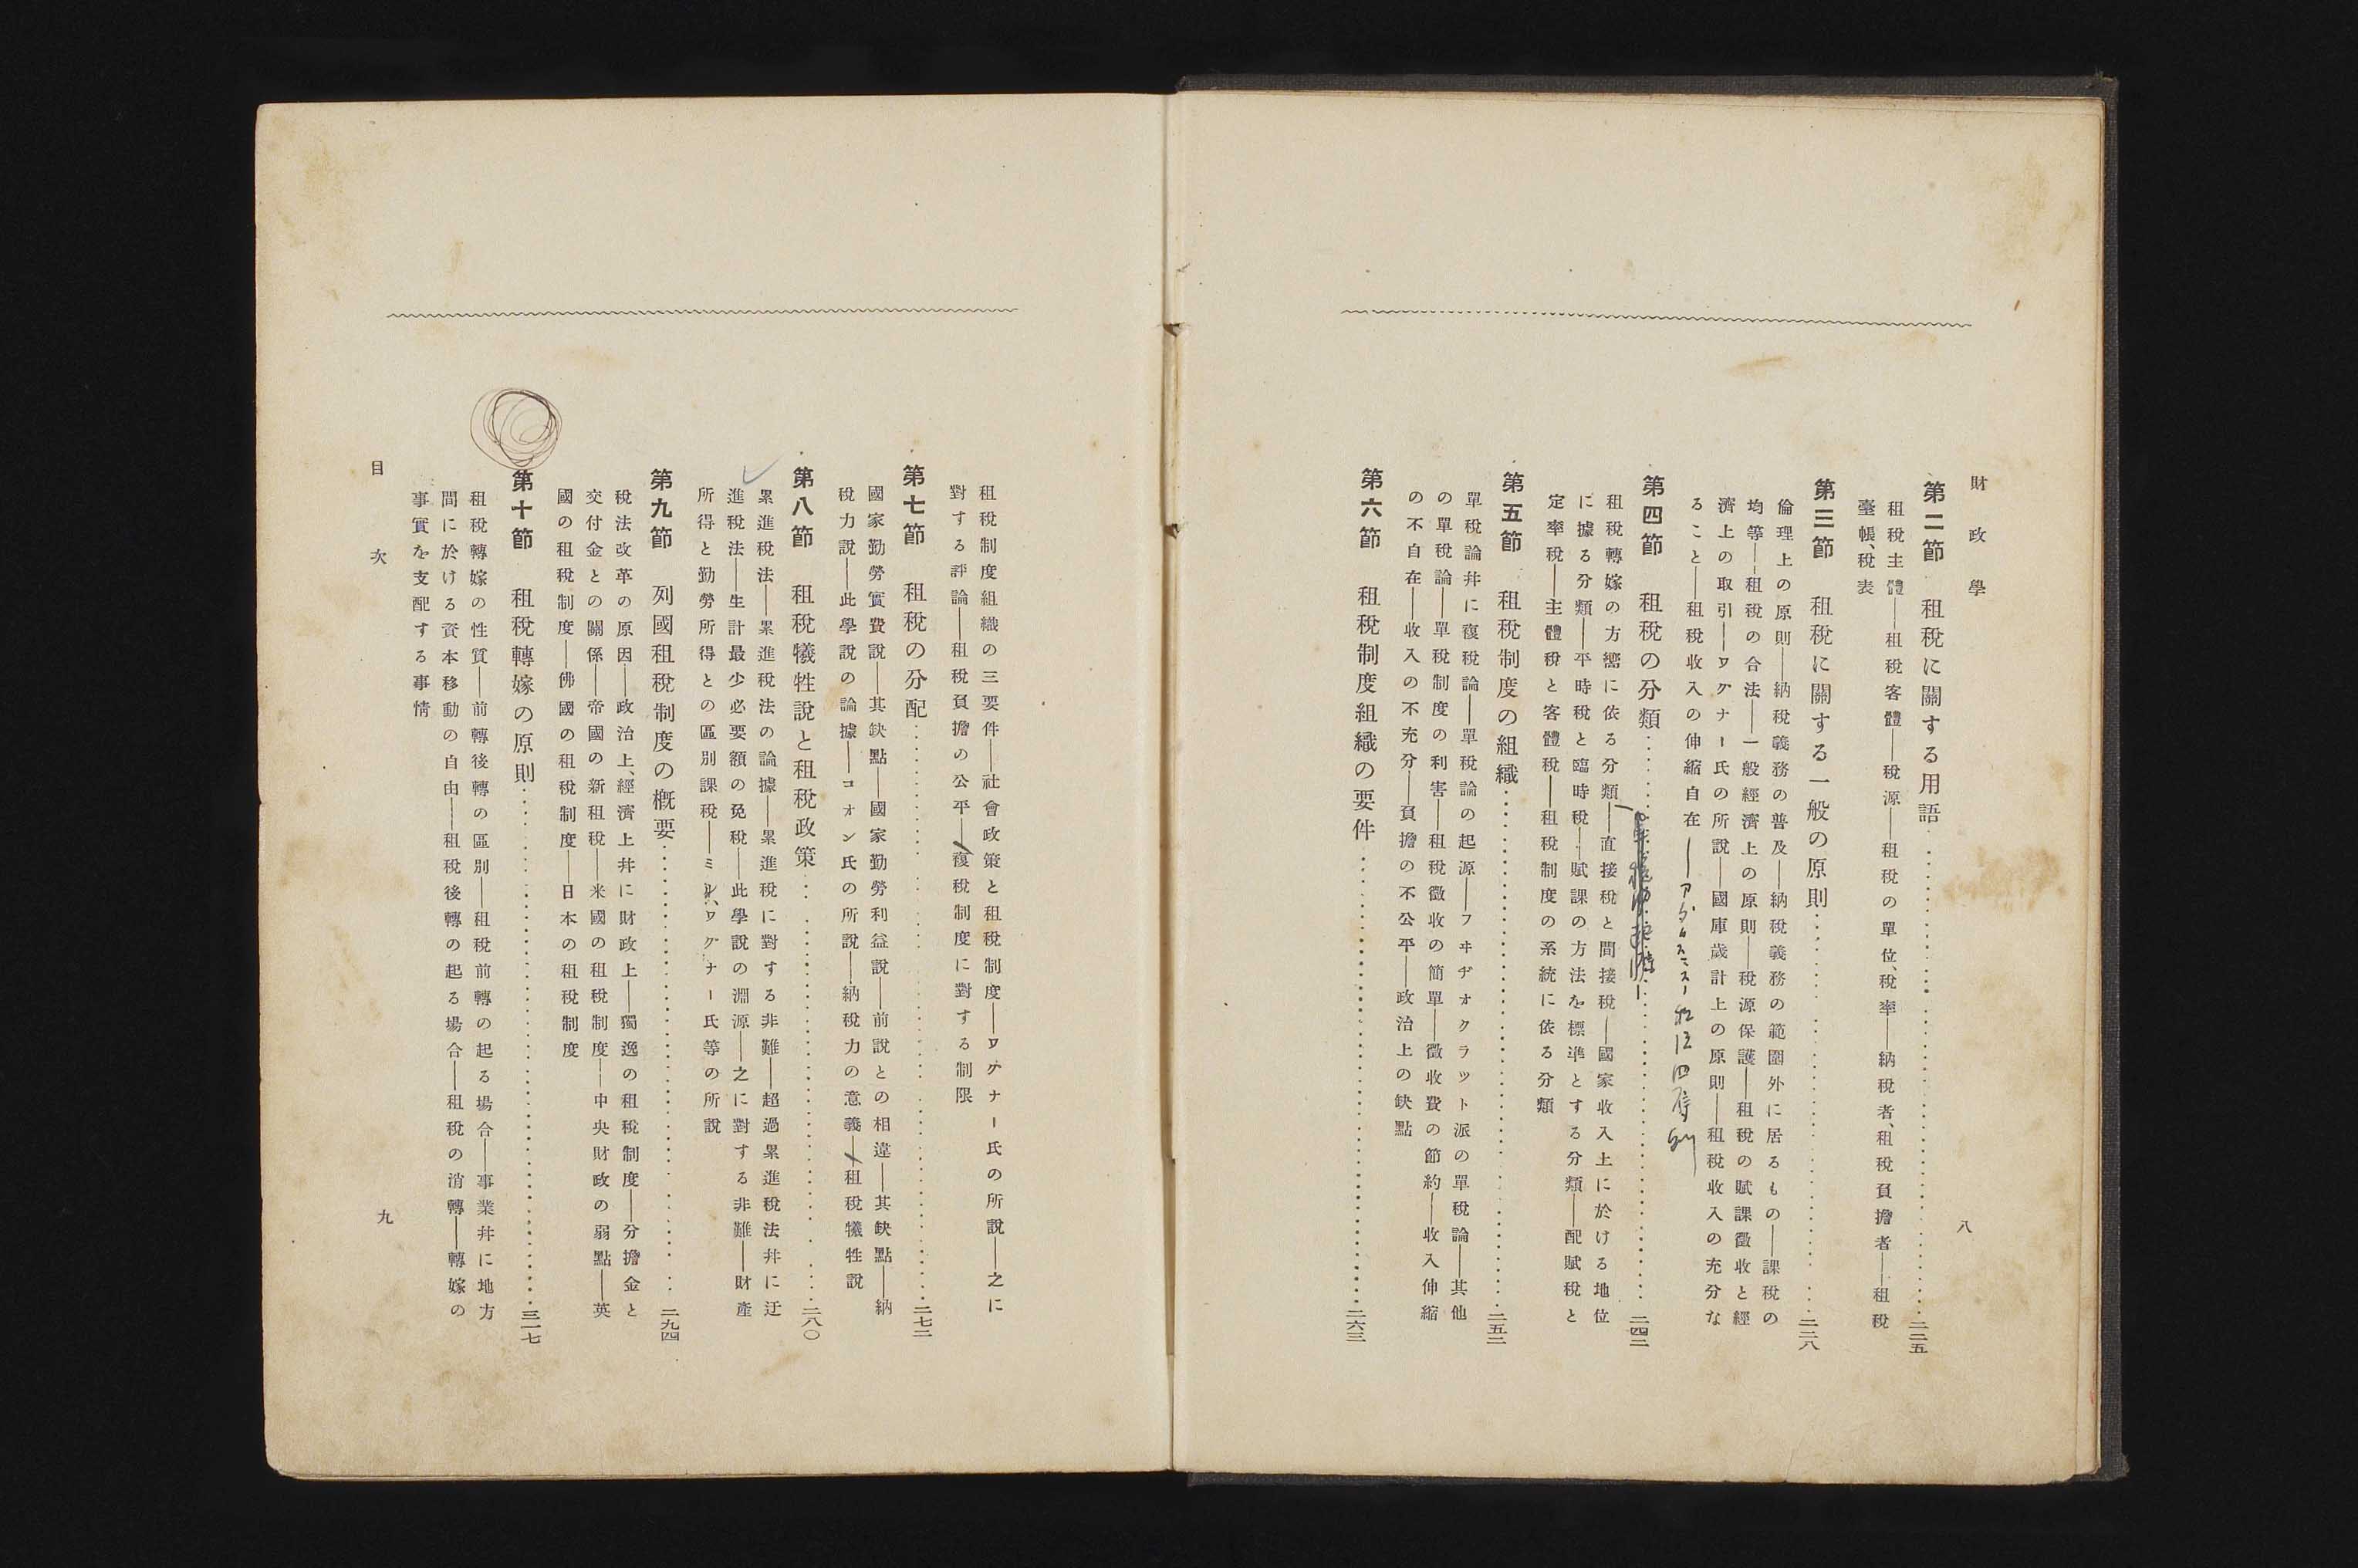 財政學
八
第二節　租稅に關する用語……二二五
租稅主體——租稅客體——稅源——租稅の單位、稅率——納稅者、租稅負擔者——租稅
臺帳、稅表
第三節　租稅に關する一般の原則……二二八
倫理上の原則——納稅義務の普及——納稅義務の範圍外に居るもの——課稅の
均等——租稅の合法——一般經濟上の原則——稅源保護——租稅の賦課徵收と經
濟上の取引——ワグナー氏の所說——國庫歲計上の原則——租稅收入の充分な
ること——租稅收入の伸縮自在——アダムスミスノ
第四節　租稅の分類……二四二
租稅轉嫁の方嚮に依る分類——直接稅と間接稅——國家收入上に於ける地位
に據る分類——平時稅と臨時稅——賦課の方法を標準とする分類——配賦稅と
定率稅——主體稅と客體稅——租稅制度の系統に依る分類
第五節　租稅制度の組織……二五二
單稅論幷に複稅論——單稅論の起源——フヰヂオクラット派の單稅論——其他
の單稅論——單稅制度の利害——租稅徵收の簡單——徵收費の節約——收入伸縮
の不自在——收入の不充分——負擔の不公平——政治上の缺點
第六節　租稅制度組織の要件……二六三
租稅制度組織の三要件——社會政策と租稅制度——ワグナー氏の所說——之に
對する評論——租稅負擔の公平——複稅制度に對する制限
第七節　租稅の分配……二七二
國家勤勞實費說——其缺點——國家勤勞利益說——前說との相違——其缺點——納
稅力說——此學說の論據——コオン氏の所說——納稅力の意義——租稅犧牲說
第八節　租稅犧牲說と租稅政策……二八〇
累進稅法——累進稅法の論據——累進稅に對する非難——超過累進稅法幷に迂
進稅法——生計最少必要額の免稅——此學說の淵源——之に對する非難——財產
所得と勤勞所得との區別課稅——ミル、ワグナー氏等の所說
第九節　列國租稅制度の概要……二九四
稅法改革の原因——政治上、經濟上幷に財政上——獨逸の租稅制度——分擔金と
交付金との關係——帝國の新租稅——米國の租稅制度——中央財政の弱點——英
國の租稅制度——佛國の租稅制度——日本の租稅制度
第十節　租稅轉嫁の原則……三一七
租稅轉嫁の性質——前轉後轉の區別——租稅前轉の起る場合——事業幷に地方
間に於ける資本移動の自由——租稅後轉の起る場合——租稅の消轉——轉嫁の
事實を支配する事情
目次
九